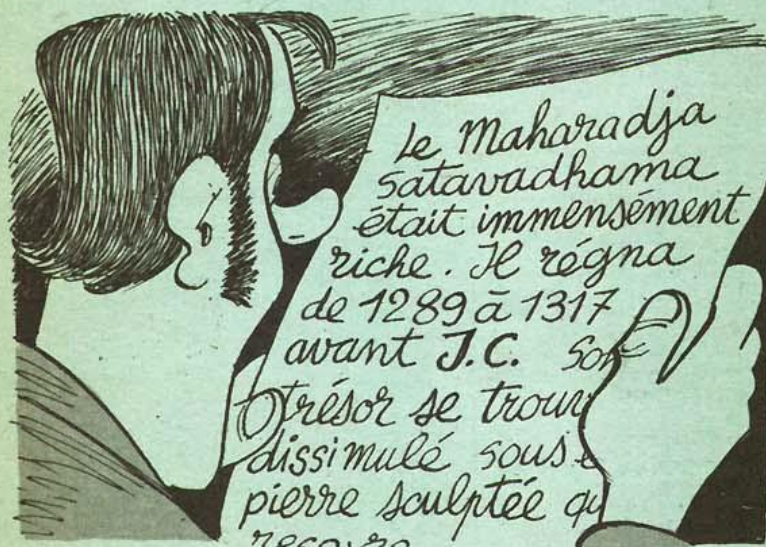 Le Maharadja
Satavadhama
était immensément
riche. Il régna
de 1289 à 1317
avant J.C. Son
trésor se trouv
dissimulé sous
pierre sculptée qu
recouvre